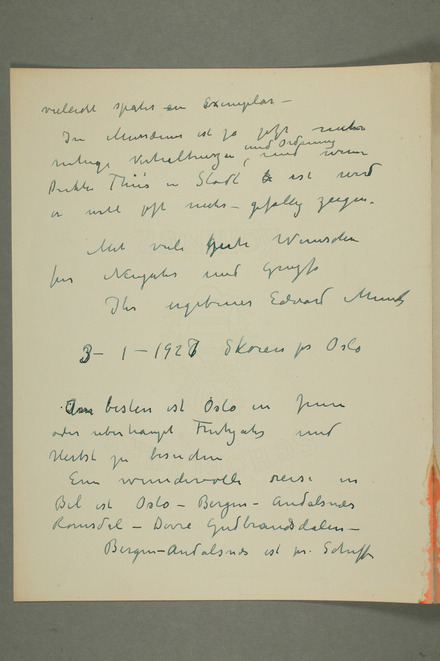 vieleicht später ein Exemplar –
In Museums ist ja jetzt
ruhige Verhaltnisse, und Ordnung und wenn
Direktor Thiis in Stadt ist wird
er wohl jetzt mehr – gefällig zeigen.
Mit viele gute Wünschen
für Neujahr und Grüsse
Ihr ergebener Edvard Munch
3 – 1 – 1927 Skøien pr Oslo
Am besten ist Oslo in Juni
oder uberhaupt Fruhjahr und
Herbst zu besuchen
Eine wundervolle reise in
Bil ist Oslo – Bergen – Andalsnes
Romsdal – Dovre Gudbrandsdalen –
Bergen – Andalsnes ist pr. Schiff